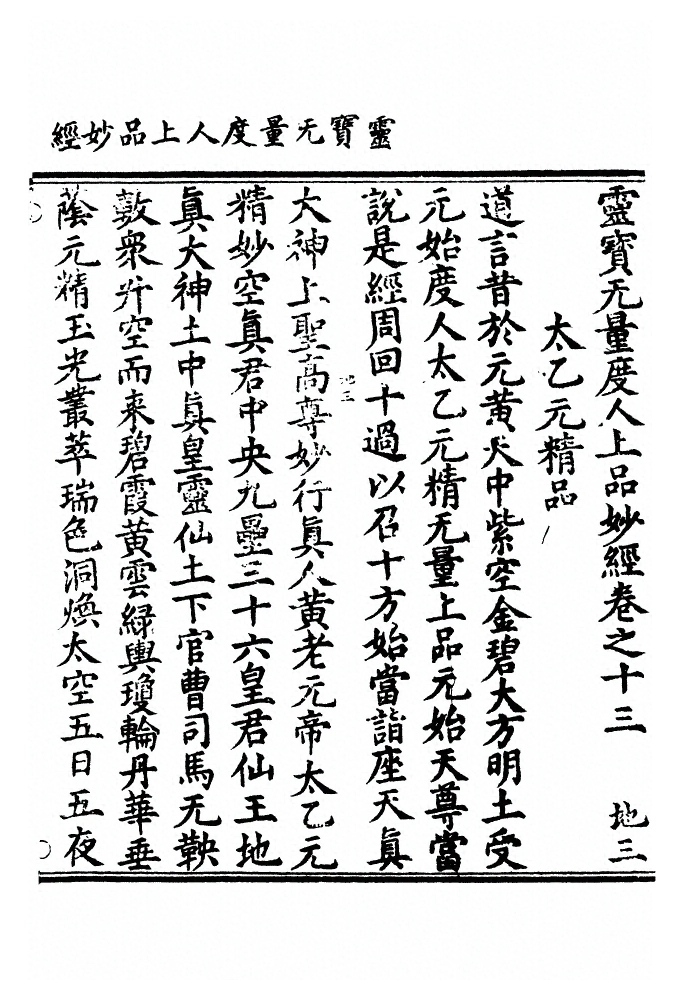 靈寶无量度人上品妙經
靈寶无量度人上品妙經卷之十三 地三
太乙元精品
道言昔於元黃天中紫空金碧大方明土受
元始度人太乙元精无量上品元始天尊當
說是經周回十過以召十方始當詣座天眞
地三
大神上聖高尊妙行眞人黃老元帝太乙元
精妙空眞君中央九壘三十六皇君仙王地
眞大神土中眞皇靈仙土下官曹司馬无鞅
數衆浮空而來碧霞黃雲綠輿瓊輪丹華垂
蔭元精玉光叢萃瑞色洞煥太空五日五夜